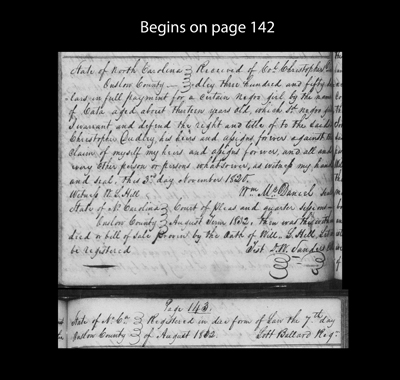 Begins on page 142
State of North Carolina Received of Col. Christopher
Onslow County Dudley three hundred and fifty
lars in full payment for a Certain negro girl by the name
of Cata aged about thirteen years old, which Sd negro girl
I warrant and defend the right and title of to the said
Christopher Dudley, his heirs and assigns forever against the
Claim of myself my heirs and assigns forever, and all and
every other person or persons whatsoever, as witness my hand
and seal, this 3rd day November 1830.
Witness W. L. Hill Wm McDaniel
State of No Carolina Court of Pleas and quarter sessions
Onslow County August Term 1832, then was the within
deed or bill of sale proven by the Oath of Will. L. Hill
be registered Test D. W. Sanders
Page 143.
State of No Ca Registered in due form of Law the 7th day
Onslow County of August 1832. Lott Ballard Regr